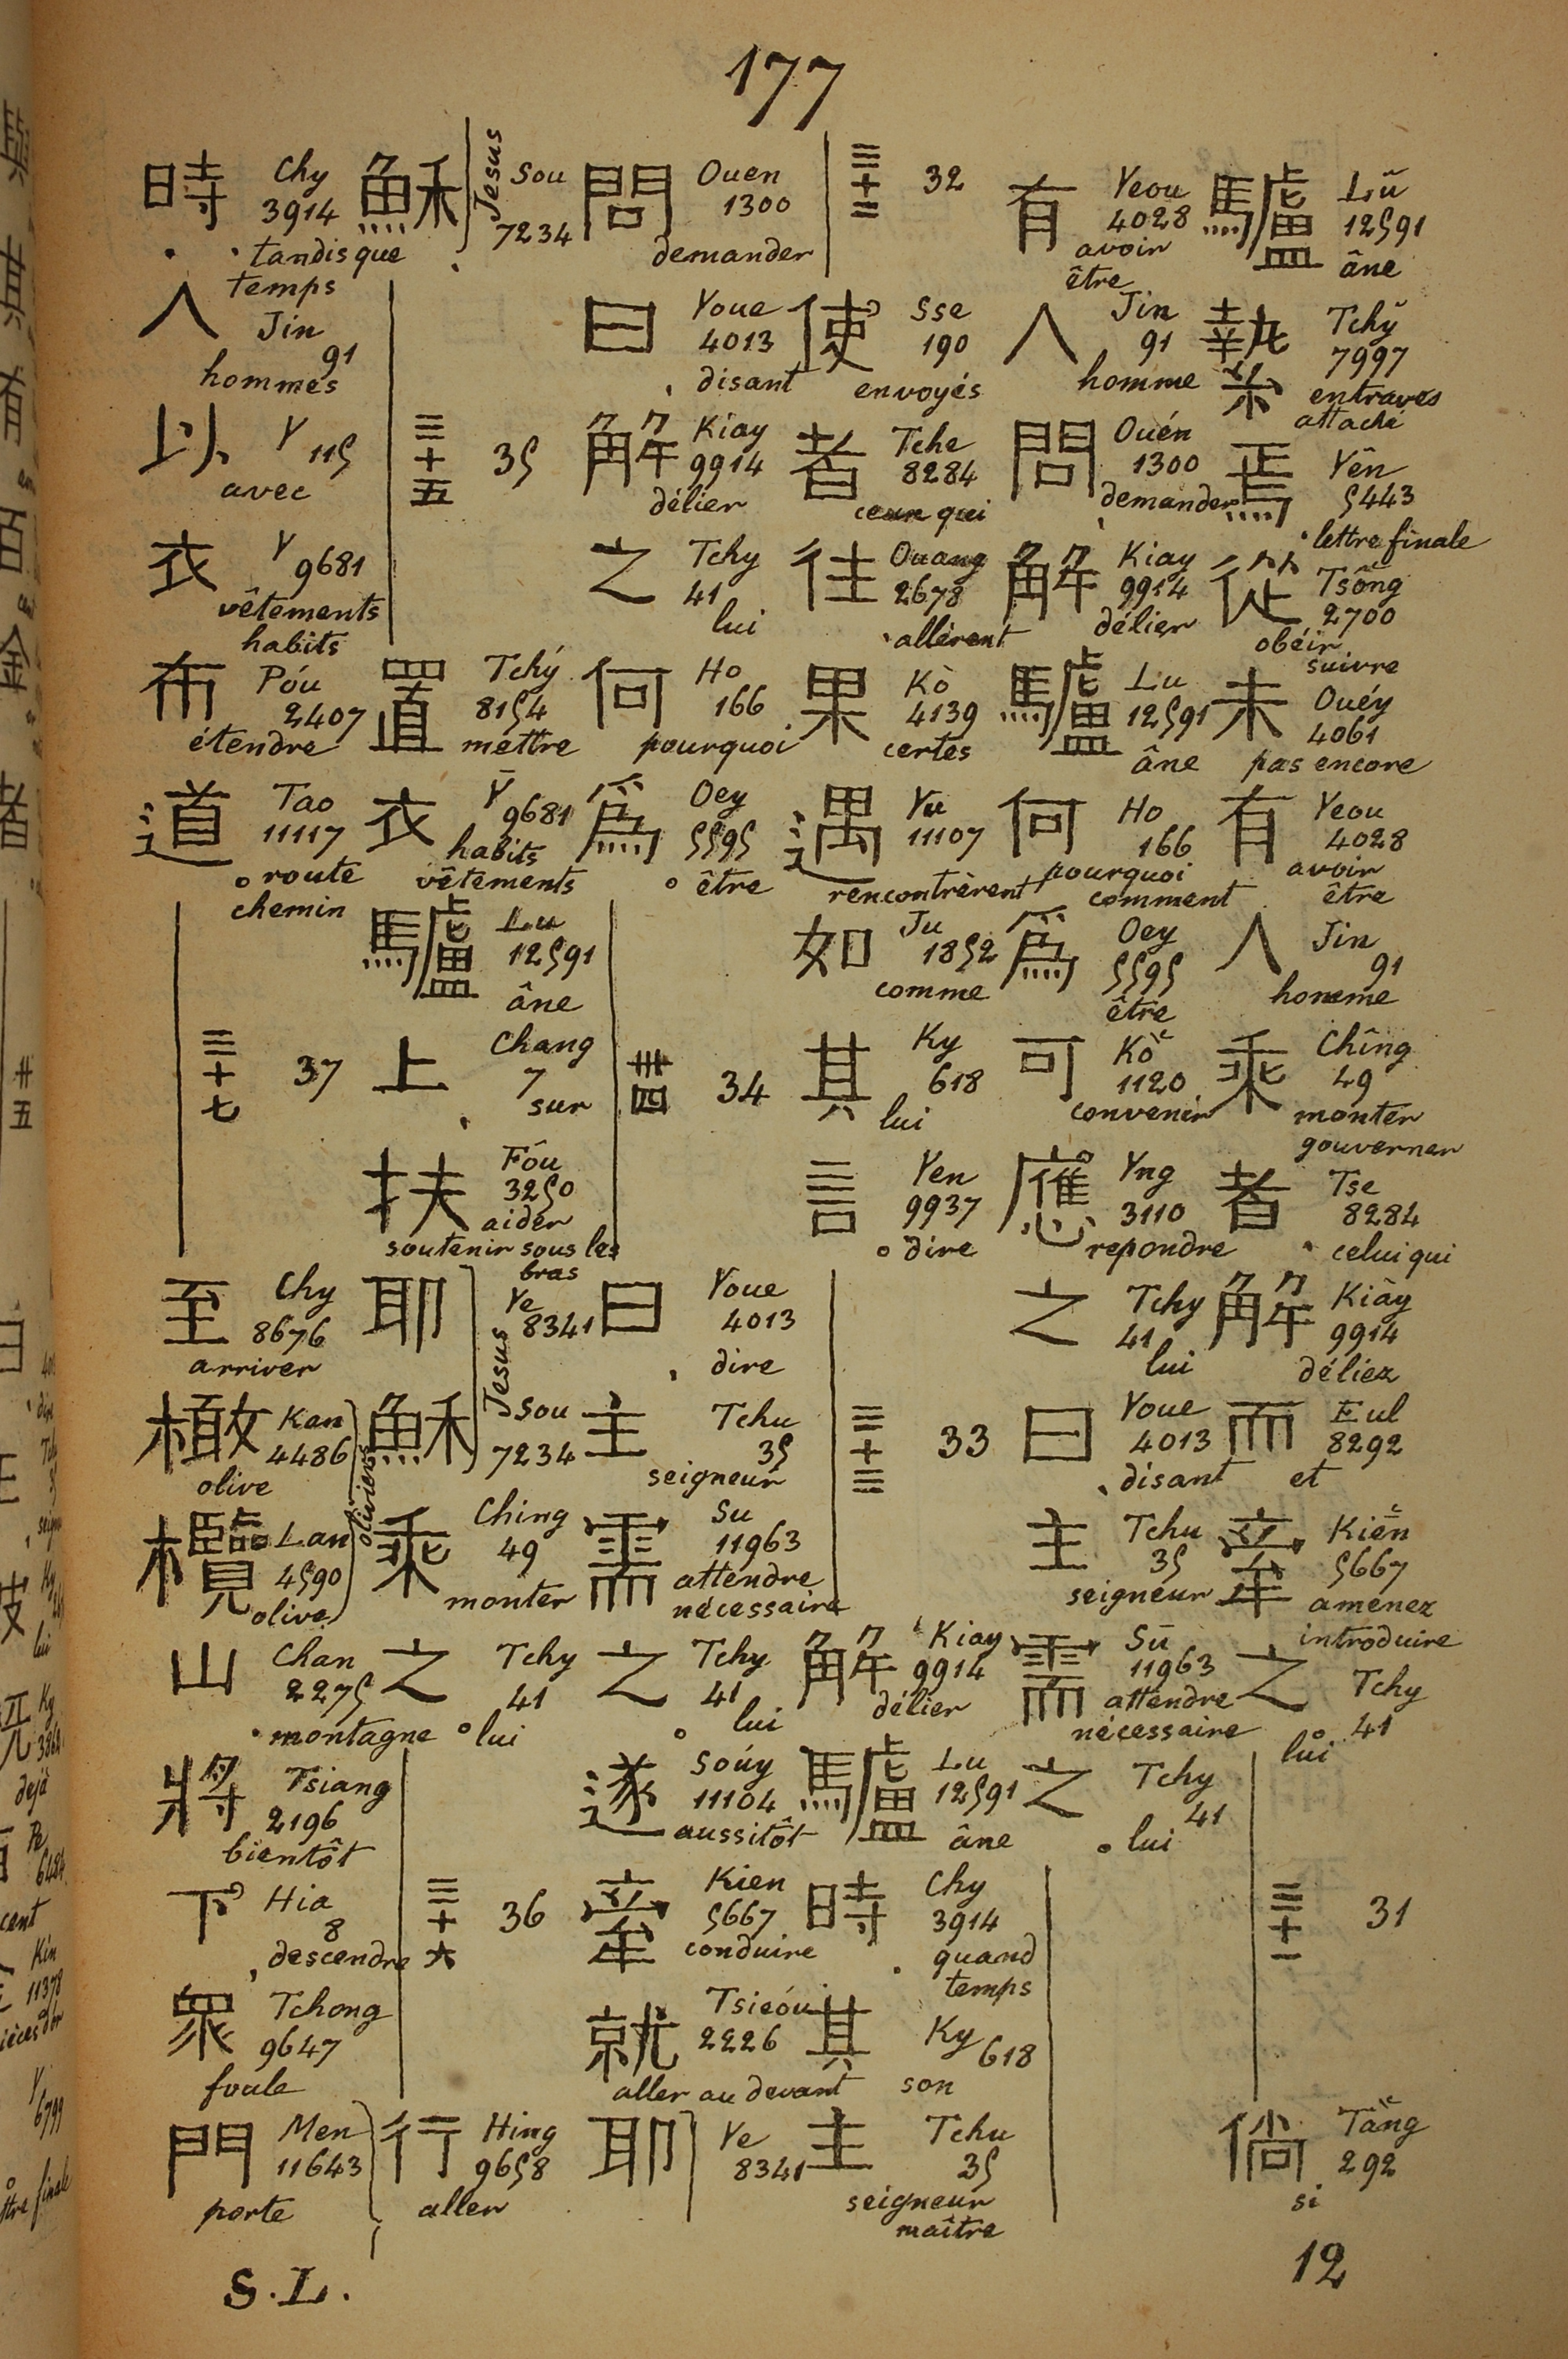 177
驢 Lŭ 12591 âne
縶 Tchy̆ 7997 entraves attaché
焉 Yên 5443 lettre finale
從 Tsông 2700 obéir suivre
未 Ouéy 4061 pas encore
有 Yeou 4028 avoir être
人 Jin 91 homme
乘 Chîng 49 monter gouverner
者 Tse 8284 celui qui
解 Kiăy 9914 déliez
而 Eul 8292 et
牽 Kiĕn 5667 amenez introduire
之 Tchy 41 lui
三十一 31
倘 Tăng 292 si
有 Yeou 4028 avoir être
人 Jin 91 homme
問 Ouén 1300 demander
解 Kiay 9914 délier
驢 Lu 12591 âne
何 Ho 166 pourquoi comment
爲 Oey 5595 être
可 Kŏ 1120 convenir
應 Yng 3110 repondre
之 Tchy 41 lui
曰 Youe 4013 disant
主 Tchu 35 seigneur
需 Sū 11963 attendre nécessaire
之 Tchy 41 lui
三十二 32
使 Sse 190 envoyés
者 Tche 8284 ceux qui
往 Ouang 2678 allèrent
果 Kò 4139 certes
遇 Yu 11107 rencontrèrent
如 Ju 1852 comme
其 Ky 618 lui
言 Yen 9937 dire
三十三 33
解 Kiay 9914 délier
驢 Lu 12591 âne
時 Chy 3914 quand temps
其 Ky 618 son
主 Tchu 35 seigneur maître
問 Ouen 1300 demander
曰 Youe 4013 disant
解 Kiay 9914 délier
之 Tchy 41 lui
何 Ho 166 pourquoi
爲 Oey 5595 être
卅四 34
曰 Youe 4013 dire
主 Tchu 35 seigneur
需 Su 11963 attendre nécessaire
之 Tchy 41 lui
三十五 35
遂 Soúy 11104 aussitôt
牽 Kien 5667 conduire
就 Tsieóu 2226 aller au devant
耶 Ye 8341
穌 Sou 7234 Jesus
置 Tchý 8154 mettre
衣 Ȳ 9681 habits vêtements
驢 Lu 12591 âne
上 Chang 7 sur
扶 Fóu 3250 aider soutenir sous les bras
耶 Ye 8341
穌 Sou 7234 Jesus
乘 Ching 49 monter
之 Tchy 41 lui
三十六 36
行 Hing 9658 aller
時 Chy 3914 tandis que temps
人 Jin 91 hommes
以 Y 115 avec
衣 Y 9681 vêtements habits
布 Póu 2407 étendre
道 Tao 11117 route chemin
三十七 37
至 Chy 8676 arriver
橄 Kan 4486 olive
欖 Lan 4590 olive oliviers
山 Chan 2275 montagne
將 Tsiang 2196 bientôt
下 Hia 8 descendre
衆 Tchong 9647 foule
門 Men 11643 porte
S.L.
12